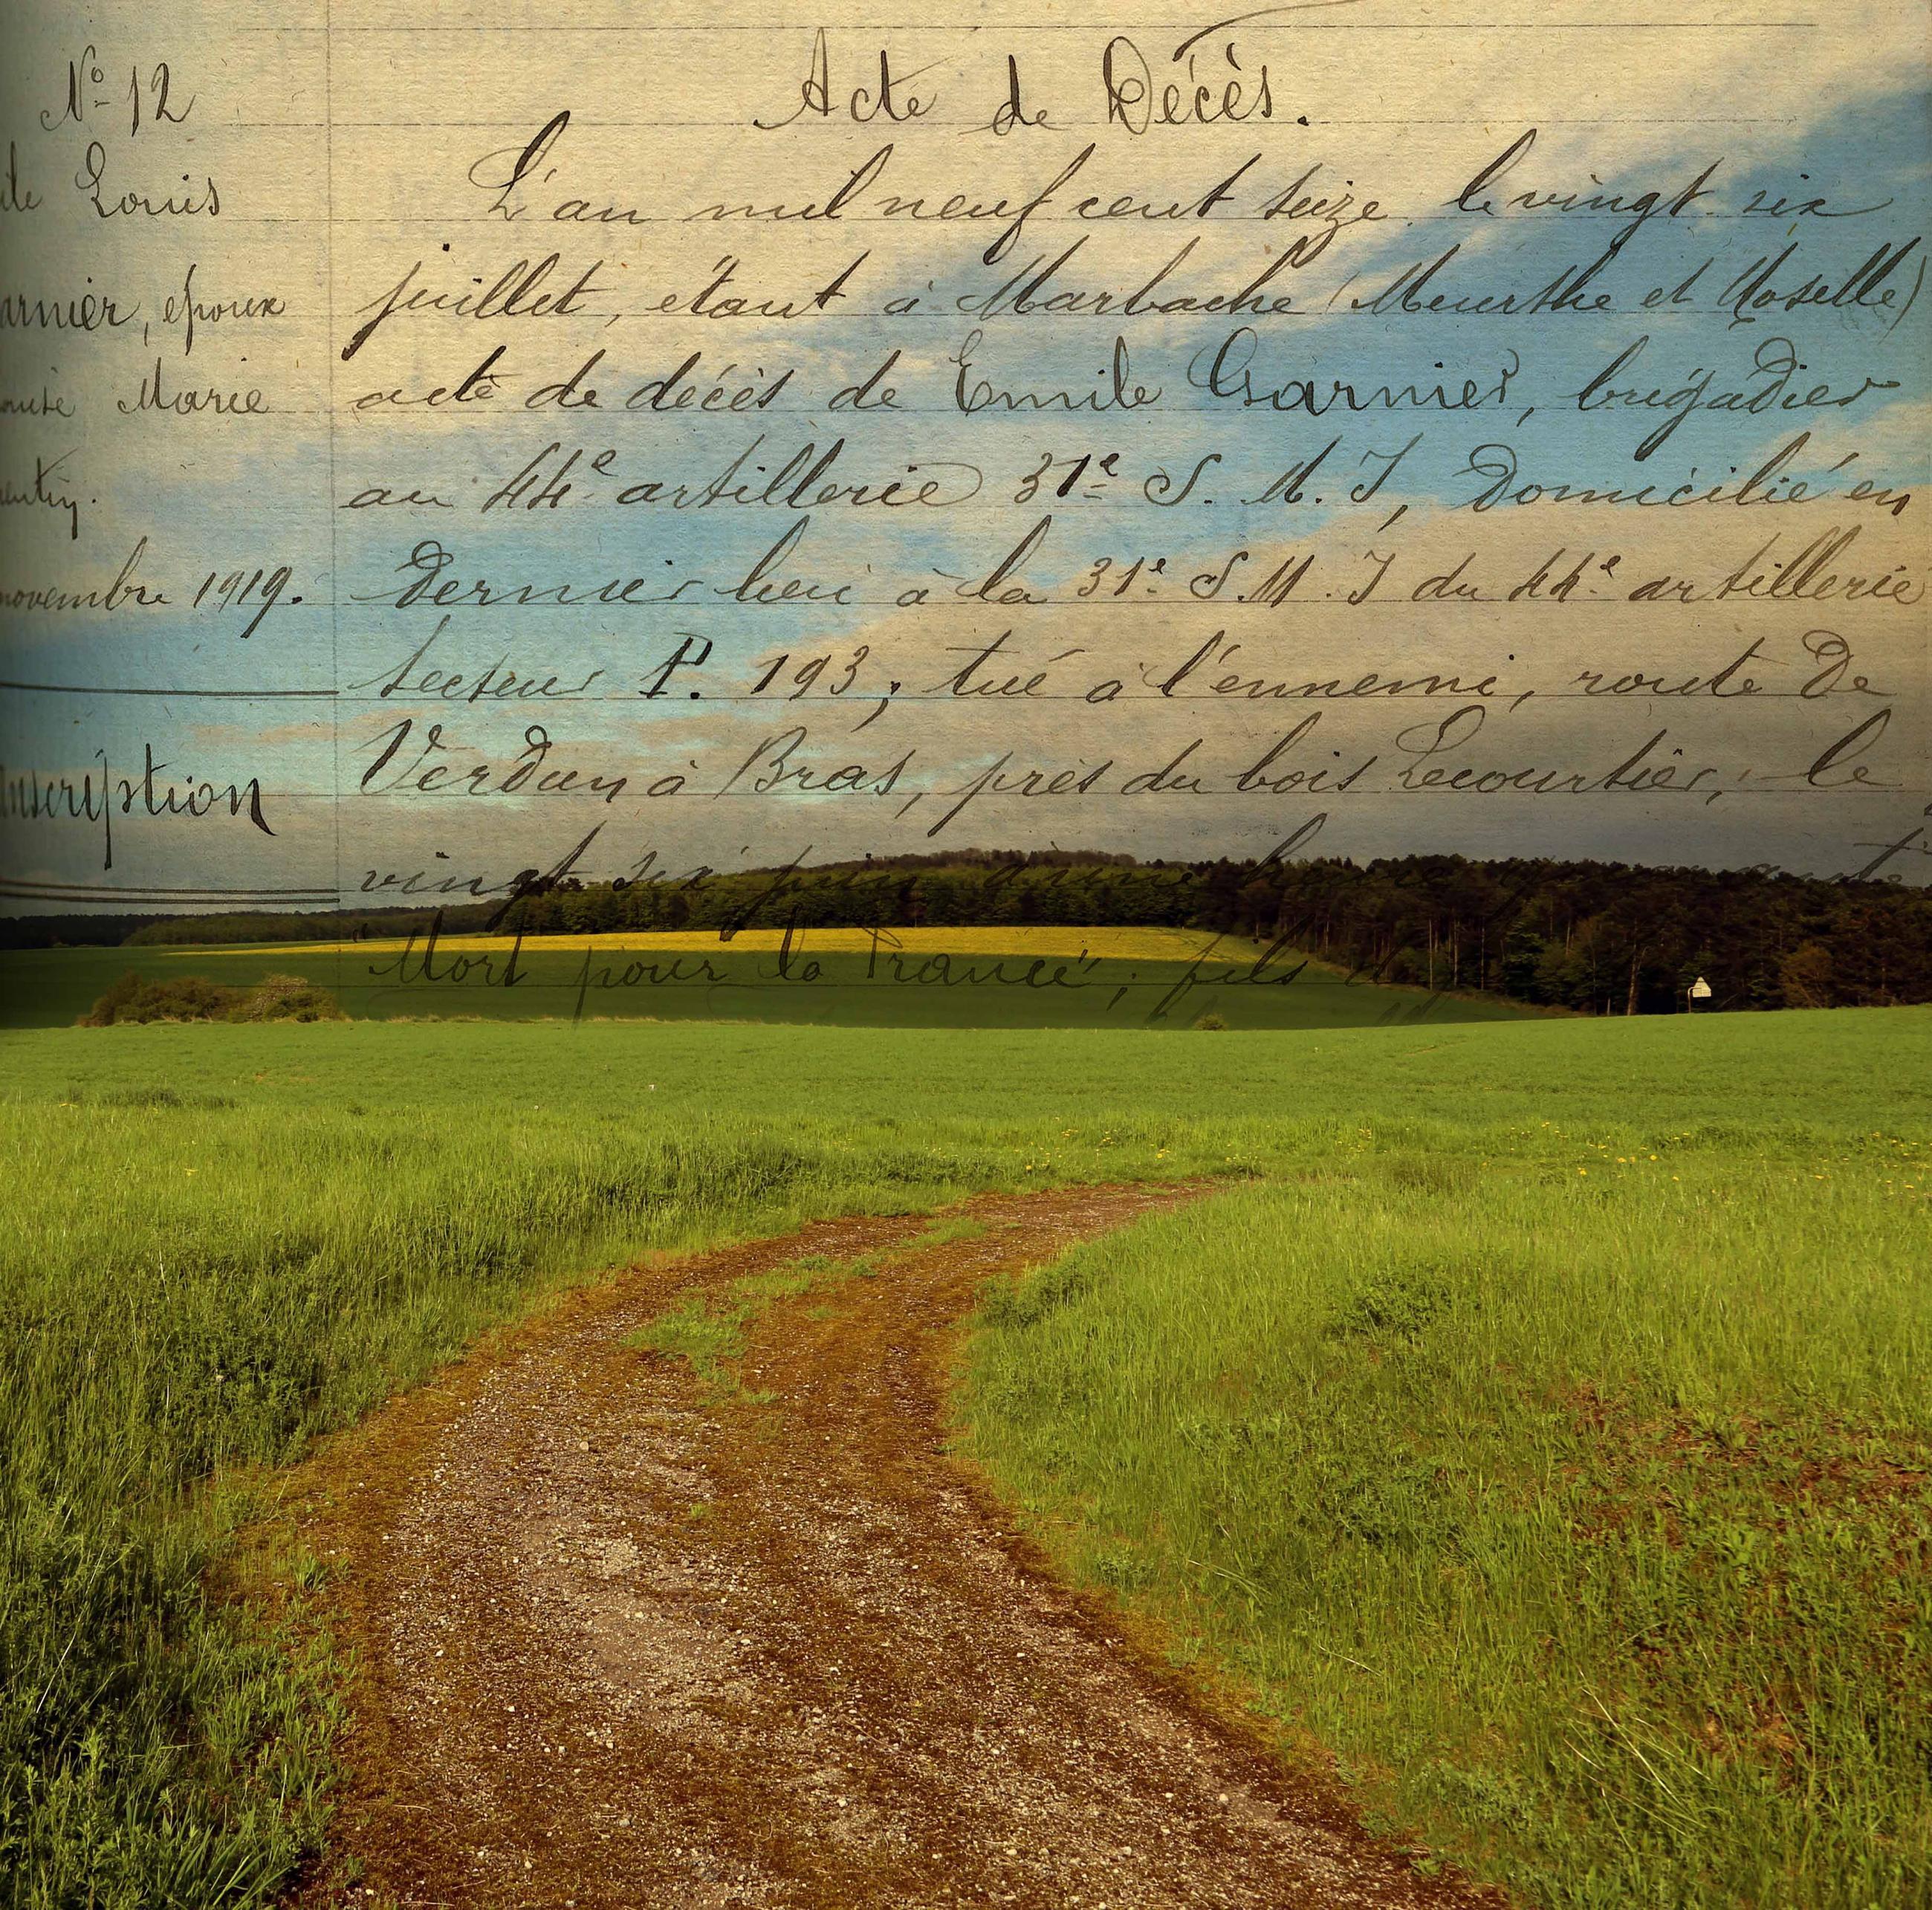 Nº 12
Louis
époux
Marie
novembre 1919.
Acte de Décès.
L'an mil neuf cent seize le vingt six
juillet, étant à Marbache (Meurthe et Moselle)
acte de décès de Emile Garnier, brigadier
au 44e artillerie 31e S. M. I, domicilié en
dernier lieu à la 31e S. M. I du 44e artillerie
secteur P. 193, tué à l'ennemi, route de
Verdun à Bras, près du bois Lecourtier, le
vingt six juin à une heure
Mort pour la France; fils